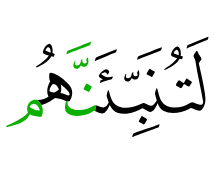 لَتُنَبِّئَنَّهُم